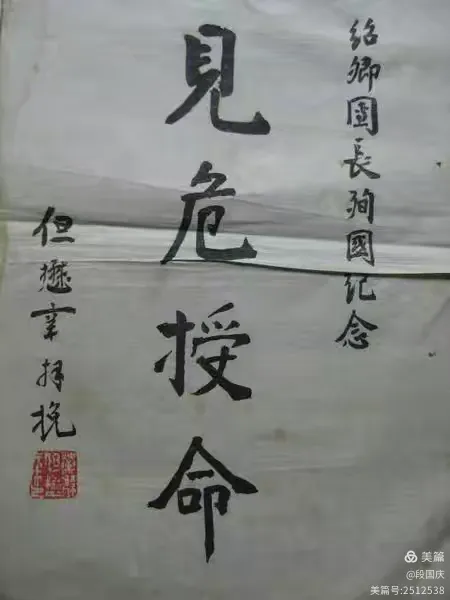 紹卿團長殉國紀念
見危授命
但懋辛拜挽
美篇
@段国庆
美篇号:2512538